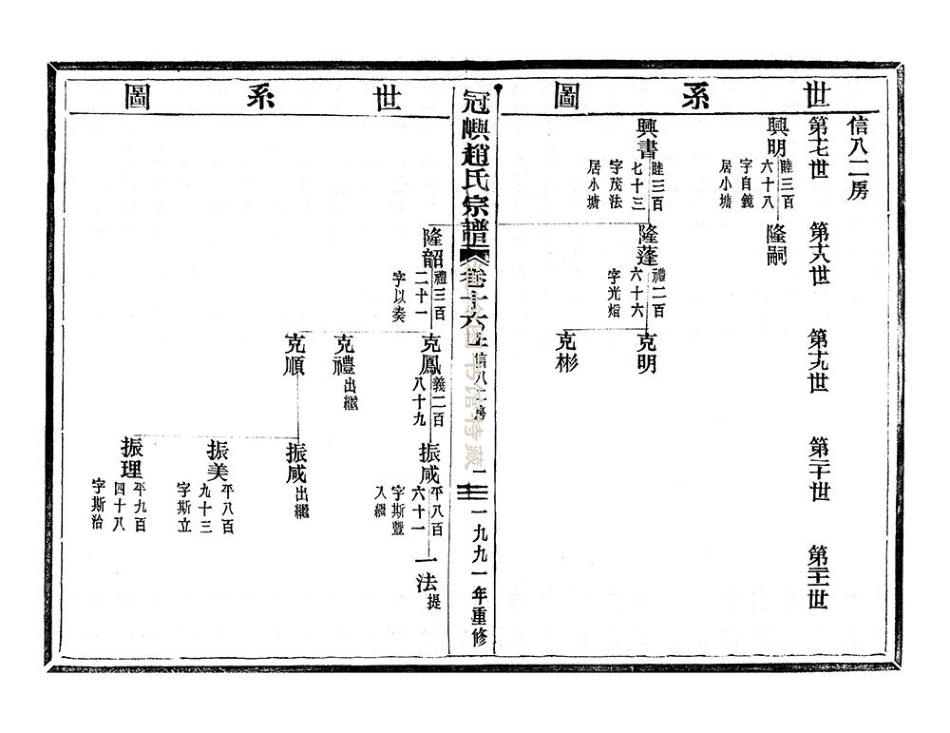 世系圖
信八二房
第十七世
第十八世
第十九世
第二十世
第二十一世
興明
睦三百
六十八
字自鏡
居小塘
隆嗣
興書
睦三百
七十三
字茂法
居小塘
隆蓬
禮二百
六十六
字光焰
克明
克彬
冠嶼趙氏宗譜
卷十六上
信八二房
一九九一年重修
图书馆特藏
世系圖
隆韶
禮三百
二十一
字以奏
克鳳
義二百
八十九
振咸
平八百
六十一
字斯豐
入繼
一法
提
克禮
出繼
克順
振咸
出繼
振美
平八百
九十三
字斯立
振理
平九百
四十八
字斯治